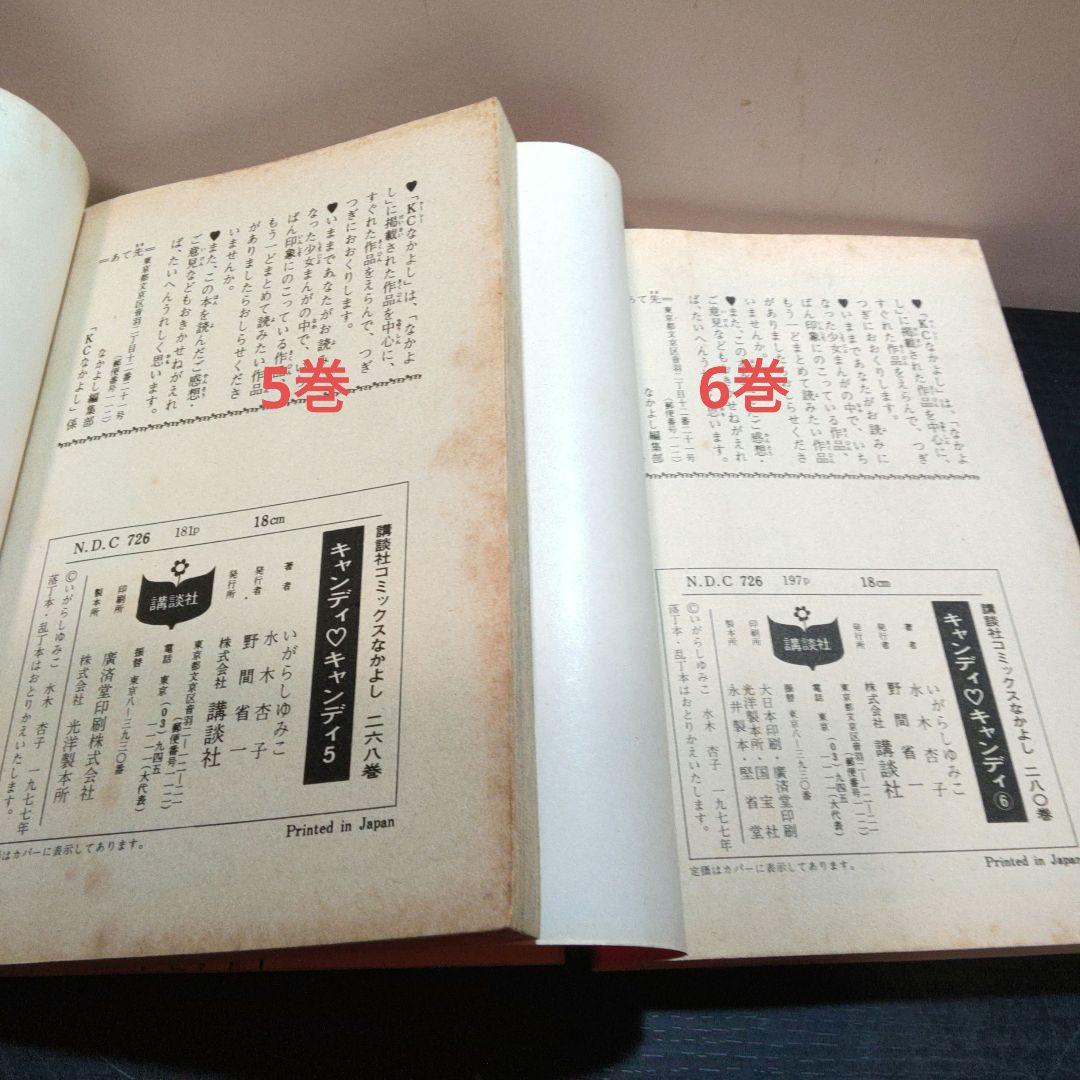 ♥「KCなかよし」は、「なかよ
し」に掲載された作品を中心に、
すぐれた作品をえらんで、つぎ
つぎにおおくりします。
♥いままであなたがお読みに
なった少女まんがの中で、い
ばん印象にのこっている作品、
もう一どまとめて読みたい作品
がありましたらおしらせくださ
いませんか。
♥また、この本を読んだご感想・
ご意見などもおきかせねがえれ
ば、たいへんうれしく思います。
＝あて先＝
東京都文京区音羽二丁目十二番二十一号
(郵便番号一一二)
なかよし編集部
「KCなかよし」係
5巻
N.D.C 726 181p 18cm
講談社コミックスなかよし 二六八巻
キャンディ♡キャンディ5
著者 いがらしゆみこ
水木杏子
発行者 野間省一
発行所 株式会社 講談社
東京都文京区音羽二—一二—二一
(郵便番号一一二)
電話 東京(03)九四五
一一一一(大代表)
振替 東京八—三九三〇番
講談社
印刷所 廣済堂印刷株式会社
製本所 株式会社 光洋製本所
©いがらしゆみこ 水木杏子 一九七七年
落丁本・乱丁本はおとりかえいたします。
Printed in Japan
はカバーに表示してあります。
♥「KCなかよし」は、「なかよ
し」に掲載された作品を中心に、
すぐれた作品をえらんで、つぎ
つぎにおおくりします。
♥いままであなたがお読みに
なった少女まんがの中で、いち
ばん印象にのこっている作品、
もう一どまとめて読みたい作品
がありましたらおしらせくださ
いませんか。
♥また、この本
ご感想・
ご意見などもおきかせねがえれ
ば、たいへんう
思います。
て先＝
東京都文京区音羽二丁目十二番二十一号
(郵便番号一一二)
なかよし編集部
6巻
N.D.C 726 197p 18cm
講談社コミックスなかよし 二八〇巻
キャンディ♡キャンディ⑥
著者 いがらしゆみこ
水木杏子
発行者 野間省一
発行所 株式会社 講談社
東京都文京区音羽二—一二—二一
(郵便番号一一二)
電話 東京(03)九四五
一一一一(大代表)
振替 東京八—三九三〇番
講談社
印刷所 大日本印刷・廣済堂印刷
製本所 光洋製本所・国宝社
永井製本・堅省堂
©いがらしゆみこ 水木杏子 一九七七年
落丁本・乱丁本はおとりかえいたします。
Printed in Japan
定価はカバーに表示してあります。